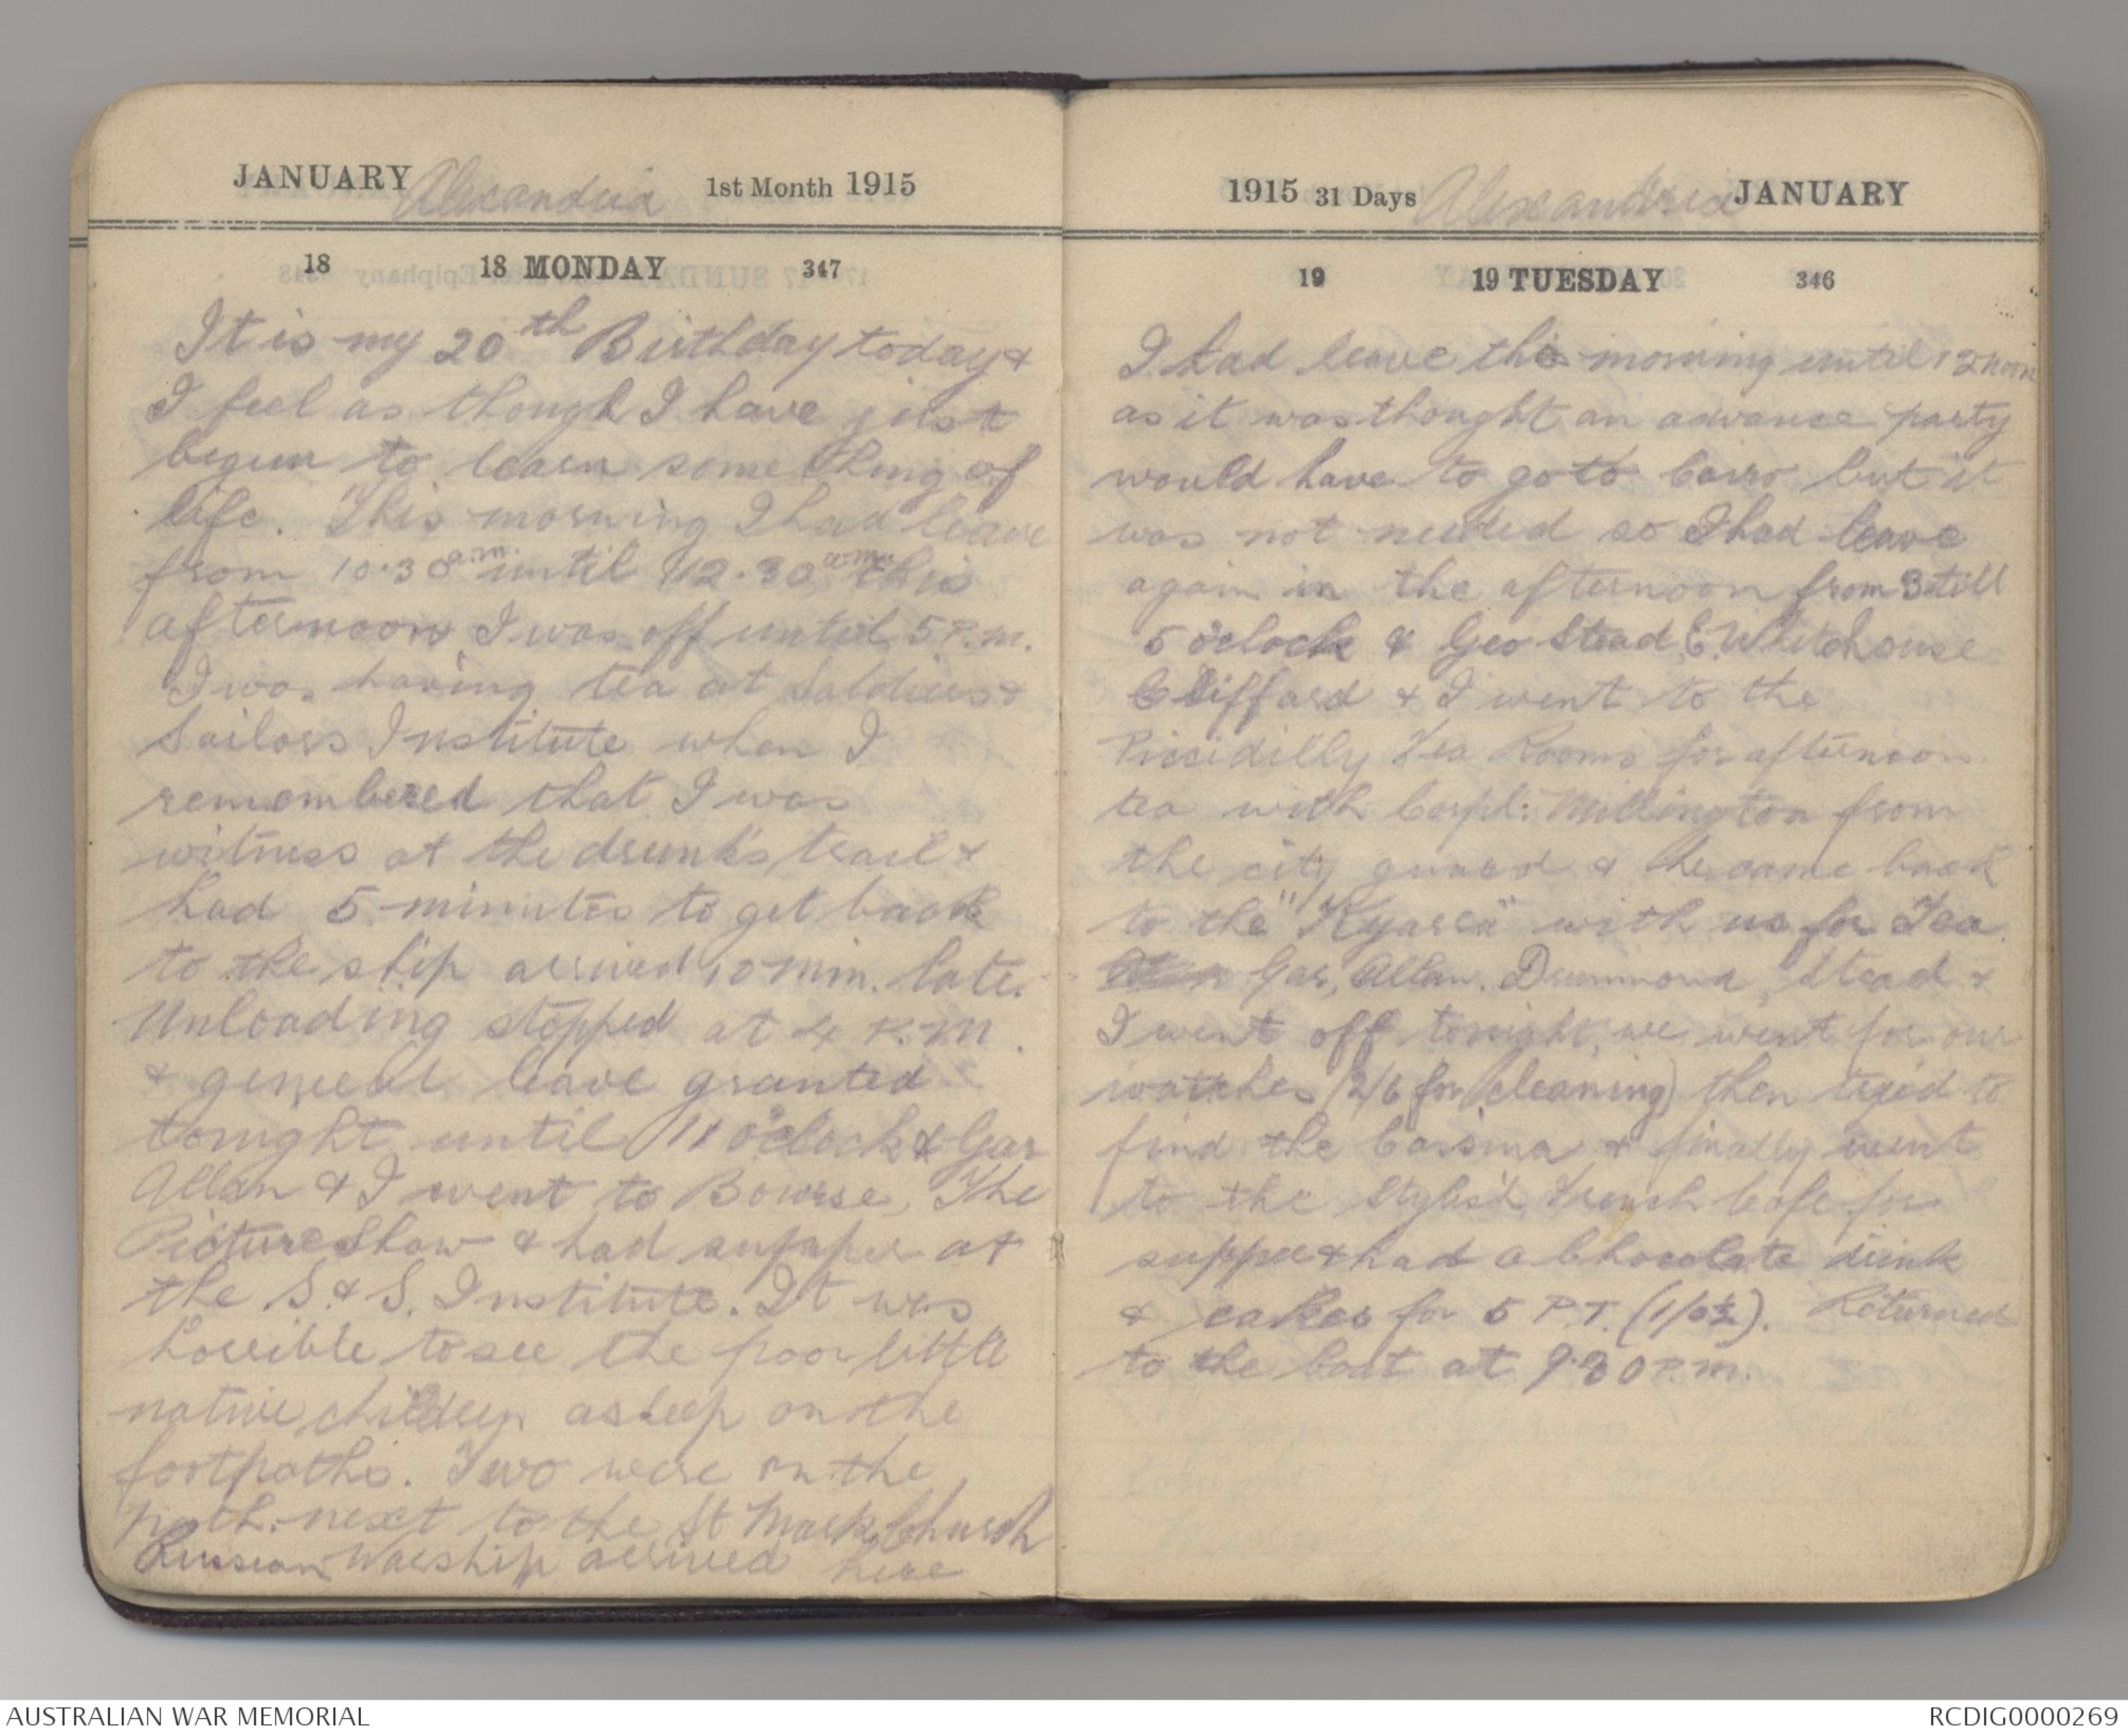 JANUARY Alexandria 1st Month 1915
18 18 MONDAY 347
It is my 20th Birthday today &
I feel as though I have just
begun to learn something of
life. This morning I had leave
from 10.30 a.m. until 12.30 this
afternoon I was off until 5 P.M.
I was having tea at Saldiers &
Sailors Institute when I
remembered that I was
witness at the drunk's trail &
had 5 minutes to get back
to the ship arrived 10 min. late.
Unloading stopped at 4 P.M.
& general leave granted
tonight until 11 o'clock & Gar
Allan & I went to Bourse, The
Picture Show & had supper at
the S. & S. Institute. It was
horrible to see the poor little
native children asleep on the
footpaths. Two were on the
path next to the St Mark Church
Russian Warship arrived here
1915 31 Days Alexandria JANUARY
19 19 TUESDAY 346
I had leave this morning until 12 noon
as it was thought an advance party
would have to go to Cairo but it
was not needed so I had leave
again in the afternoon from 3 till
5 o'clock & Geo Stead, C. Whitehouse
C Clifford & I went to the
Piccidilly Tea Rooms for afternoon
tea with Corpl: Millington from
the city guard & he came back
to the "Kyarra" with us for Tea.
Gar, Allan, Drummond, Stead &
I went off tonight, we went for our
watches (2/6 for cleaning) then tried to
find the Cassina & finally went
to the Stylish French Cafe for
supper & had a Chocolate drink
& cakes for 5 P.T. (1/0½). Returned
to the boat at 9.30 P.M.
AUSTRALIAN WAR MEMORIAL
RCDIG0000269